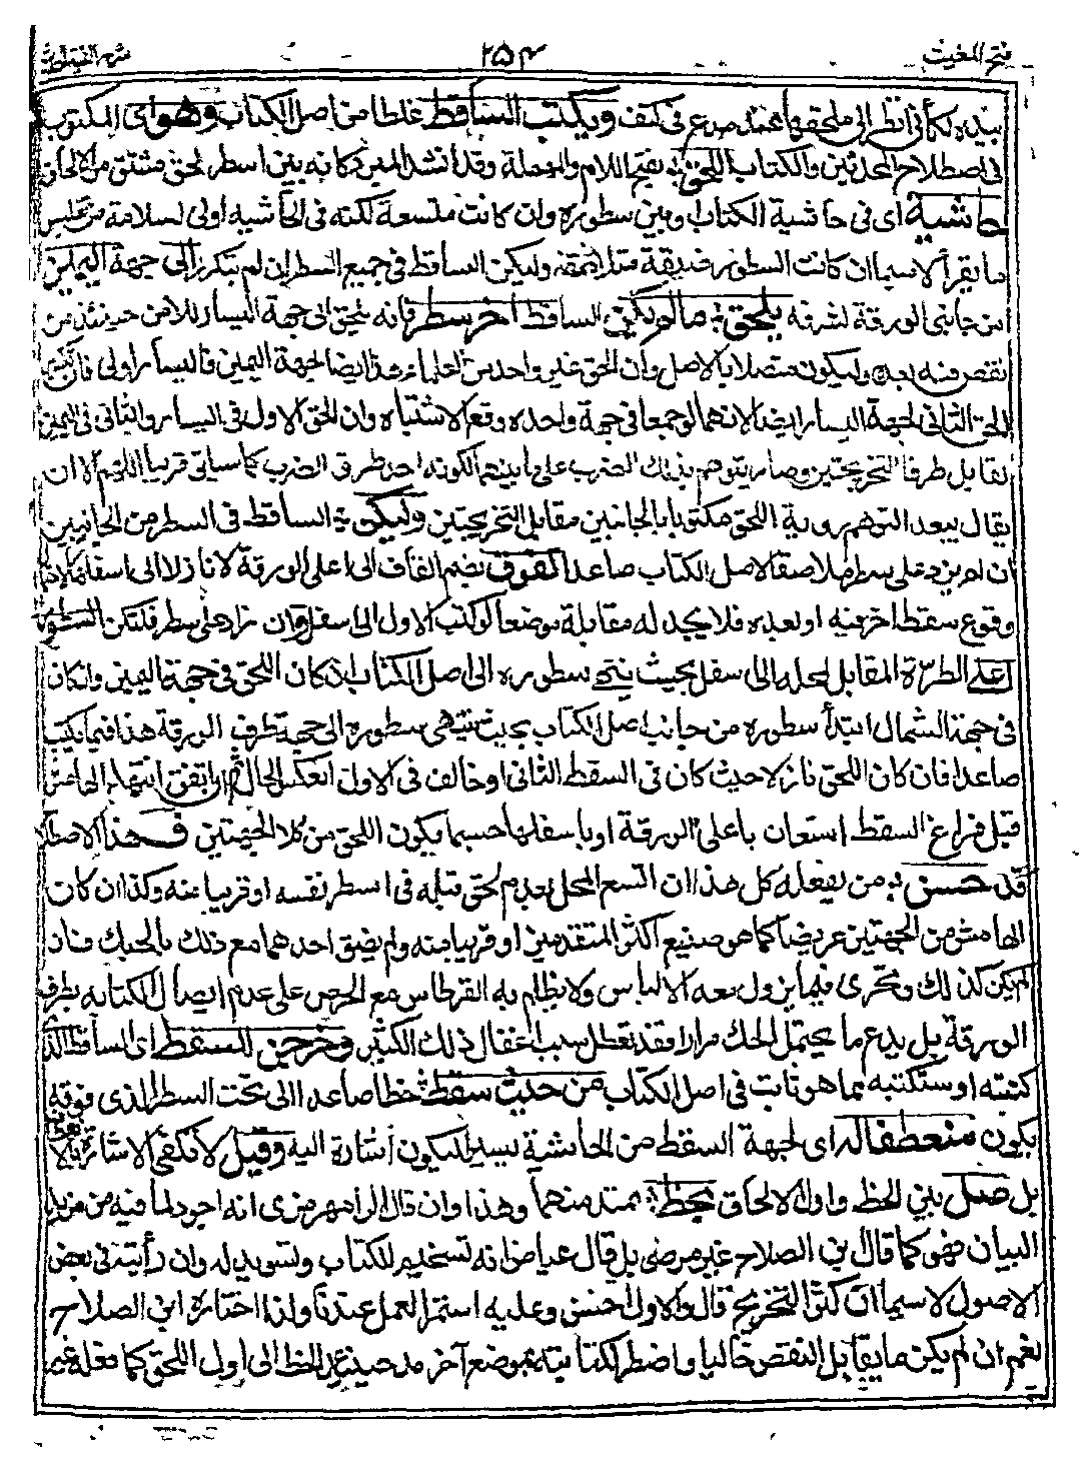 فتح المغيث ٢٥٤
بيده لكأني انظر الى ملحق بها عند صدع في كتف ويكتب الساقط غلطا من اصل الكتاب وهو اى المكتوب
في اصطلاح المحدثين والكتاب اللحق بفتح اللام والمهملة وقد انشد المبرد كانه بين اسطر لحق مشتق من الالحاق
حاشية اى في حاشية الكتاب او بين سطوره وان كانت متسعة لكنه في الحاشية اولى لسلامته من تغليس
ما يقرأ لاسيما ان كانت السطور ضيقة متلاصقة وليكن الساقط في جميع السطر ان لم يتكرر الى جهة اليمين
من جانبى الورقة لشرفه يلحق ما لم يكن الساقط آخر سطر فانه يلحق الى جهة اليسار للامن حينئذ من
نقص فيه بعده وليكون متصلا بالاصل وان الحق غير واحد من العلماء هذا ايضا لجهة اليمين فاليسار اولى فان
الحق الثانى لجهة اليسار ايضا لانهما لو جمعا في جهة واحدة وقع الاشتباه وان الحق الاول في اليسار والثاني في اليمين
تقابل طرفا التخريجتين وصار يتوهم بذلك الضرب على ما بينهما لكونه احد طرق الضرب كما سياتي قريبا اللهم الا ان
يقال يبعد التوهم رؤية اللحق مكتوبا بالجانبين مقابل التخريجتين وليكن الساقط في السطر من الجانبين
ان لم يزد على سطر ملاصقا لاصل الكتاب صاعدا لفوق بضم القاف الى اعلى الورقة لا نازلا الى اسفلها
وقوع سقط آخر فيه او بعده فلا يجد له مقابلة موضعا لو كتب الاول الى اسفل وان زاد على سطر فلتكن السطور
اعلى الطرة المقابل لمحله الى اسفل بحيث ينتهى سطوره الى اصل الكتاب اذ كان اللحق في جهة اليمين وان كان
في جهة الشمال ابتدأ سطوره من جانب اصل الكتاب بحيث تنتهى سطوره الى جهة طرف الورقة هذا فيما يكتب
صاعدا فان كان اللحق نازلا حيث كان في السقط الثانى او خالف في الاول انعكس الحال ثم ان اتفق انتهاء الهامش
قبل فراغ السقط استعان باعلى الورقة او باسفلها حسبما يكون اللحق من كلا الجهتين فهذا الاصطلاح
قد حسن من يفعله كل هذا ان اتسع المحل بعدم لحق قبله في السطر نفسه او قريبا منه وكذا ان كان
الهامش من الجهتين عريضا كما هو صنيع اكثر المتقدمين او قريبا منه ولم يضق احدهما مع ذلك بالحبك فان
لم يكن كذلك وتحرى فيما يزول معه الالباس ولا يظلم به القرطاس مع الحرص على عدم ايصال الكتابة بطرف
الورقة بل يدع ما يحتمل الحك مرارا فقد تعطل بسبب اغفال ذلك الكثير وخرجن للسقط اى الساقط الذى
كتبته او ستكتبه مما هو ثابت في اصل الكتاب من حيث سقط خطا صاعدا الى تحت السطر الذى فوقه
يكون منعطفا له اى لجهة السقط من الحاشية يسيرا ليكون اشارة اليه وقيل لا تكفى الاشارة بالانعطاف
بل صل بين الخط واول الالحاق بخط يمتد بينهما وهذا وان قال الرامهرمزى انه اجود لما فيه من مزيد
البيان فهو كما قال بن الصلاح غير مرضى بل قال عياض انه تسخيم للكتاب وتسويد له وان رأيته في بعض
الاصول لاسيما ان كثر التخريج قال والاول احسن وعليه استمر العمل عندنا ولذا اختاره ابن الصلاح
نعم ان لم يكن ما يقابل النقص خاليا واضطر لكتابته بموضع آخر مد حينئذ الخط الى اول اللحق كما فعله غير